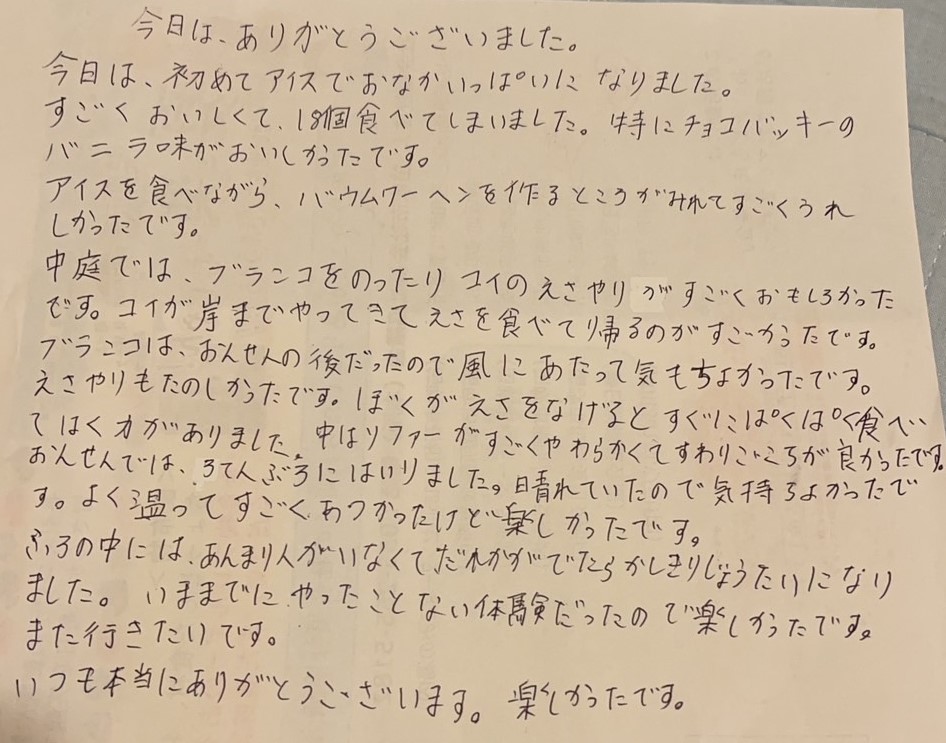 今日は、ありがとうございました。
今日は、初めてアイスでおなかいっぱいになりました。
すごくおいしくて、18個食べてしまいました。特にチョコバッキーの
バニラ味がおいしかったです。
アイスを食べながら、バウムワーヘンを作るところがみれてすごくうれ
しかったです。
中庭では、ブランコをのったりコイのえさやりがすごくおもしろかった
です。コイが岸までやってきてえさを食べて帰るのがすごかったです。
ブランコは、おんせんの後だったので風にあたって気もちよかったです。
えさやりもたのしかったです。ぼくがえさをなげるとすぐにぱくぱく食べ
てはく力がありました。中はソファーがすごくやわらかくてすわりごこちが良かったです。
おんせんでは、ろてんぶろにはいりました。晴れていたので気持ちよかったで
す。よく温ってすごくあつかったけど楽しかったです。
ふろの中には、あんまり人がいなくてだれかがでたらかしきりじょうたいになり
ました。いままでにやったことない体験だったので楽しかったです。
また行きたいです。
いつも本当にありがとうございます。楽しかったです。